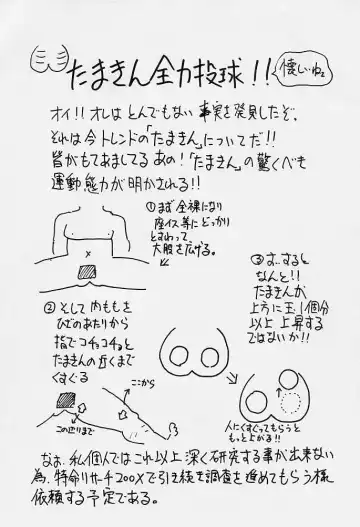 たまきん全力投球!!
懐しいね。
オイ!!オレはとんでもない事実を発見したぞ。
それは今トレンドの「たまきん」についてだ!!
皆がもてあましてるあの!「たまきん」の驚くべき
運動能力が明かされる!!
①まず全裸になり
座イス等にどっかり
とすわって、
大股を広げる。
②そして内ももを
ひざのあたりから
指でコチョコチョと
たまきんの近くまで
くすぐる
この辺りまで
ここから
③
するとなんと!!
たまきんが
上方に玉1個分
以上上昇する
ではないか!!
人にくすぐってもらうと
もっと上がる!!
なお、私個人ではこれ以上深く研究する事が出来ない
為、特命リサーチ200Xで引き続き調査を進めてもらう様
依頼する予定である。